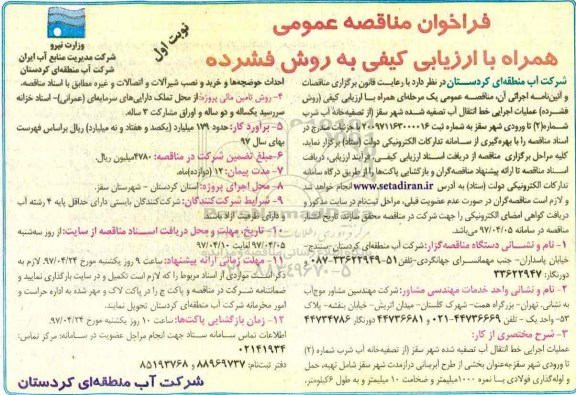 فراخوان مناقصه عمومی
همراه با ارزیابی کیفی به روش فشرده
نوبت اول
وزارت نیرو
شرکت مدیریت منابع آب ایران
شرکت آب منطقه‌ای کردستان
شرکت آب منطقه‌ای کردستان در نظر دارد با رعایت قانون برگزاری مناقصات
و آئین‌نامه اجرائی آن، مناقصه عمومی یک مرحله‌ای همراه با ارزیابی کیفی (روش
فشرده) عملیات اجرایی خط انتقال آب تصفیه شده شهر سقز (از تصفیه‌خانه آب شرب
شماره(۲) تا ورودی شهر سقز به شماره ثبت ۲۰۰۹۷۱۱۶۳۰۰۰۰۱۶ مندرج در
اسناد مناقصه را با بهره‌گیری از سامانه تدارکات الکترونیکی دولت (ستاد) برگزار نماید.
کلیه مراحل برگزاری مناقصه از دریافت اسناد ارزیابی کیفی، فرآیند ارزیابی، دریافت
اسناد مناقصه تا ارائه پیشنهاد مناقصه‌گران و بازگشایی پاکت‌ها را از طریق درگاه سامانه
تدارکات الکترونیکی دولت (ستاد) به آدرس www.setadiran.ir انجام خواهد شد
و لازم است مناقصه‌گران در صورت عدم عضویت قبلی، مراحل ثبت‌نام در سایت مذکور و
دریافت گواهی امضای الکترونیکی را جهت شرکت در مناقصه محقق سازند. تاریخ انتشار
مناقصه در سامانه ۹۷/۰۴/۰۵ می‌باشد.
۱- نام و نشانی دستگاه مناقصه‌گزار: شرکت آب منطقه‌ای کردستان-سنندج-
خیابان پاسداران- جنب مهمانسرای جهانگردی-تلفن ۵۱-۳۳۶۲۲۹۴۹-۰۸۷
دورنگار: ۳۳۶۲۲۹۴۷
۲- نام و نشانی واحد خدمات مهندسی مشاور: شرکت مهندسین مشاور موج‌آب
به نشانی، تهران- بزرگراه همت- شهرک گلستان- میدان اتریش- خیابان بنفشه- پلاک
۵۳- واحد یک - تلفن ۴۴۷۳۶۶۶۹-۰۲۱ و ۴۴۷۳۶۶۸۱ دورنگار ۴۴۷۳۴۷۸۶
۳- شرح مختصری از کار:
عملیات اجرایی خط انتقال آب تصفیه شده شهر سقز (از تصفیه‌خانه آب شرب شماره (۲)
تا ورودی شهر سقز)به‌عنوان بخشی از طرح آبرسانی درازمدت شهر سقز شامل تهیه، حمل
و لوله‌گذاری فولادی با نمره ۱۰۰۰میلیمتر و ضخامت ۱۰ میلیمتر و به طول ۶کیلومتر،
احداث حوضچه‌ها و خرید و نصب شیرآلات و اتصالات و غیره مطابق با اسناد مناقصه،
۴-روش تامین مالی پروژه: از محل تملک دارایی‌های سرمایه‌ای (عمرانی)- اسناد خزانه
سررسید یکساله و دو ساله و اوراق مشارکت ۳ ساله.
۵-برآورد کار: حدود ۱۷۹ میلیارد (یکصد و هفتاد و نه میلیارد) ریال براساس فهرست
بهای سال ۹۷
۶-مبلغ تضمین شرکت در مناقصه: ۴۷۸۰میلیون ریال.
۷- مدت پیمان: ۱۲ (دوازده)ماه.
۸- محل اجرای پروژه: استان کردستان - شهرستان سقز.
۹- شرایط شرکت‌کنندگان: شرکت‌کنندگان بایستی دارای حداقل پایه ۴ رشته آب
و دارای ظرفیت آزاد باشند.
۱۰- تاریخ، مهلت و محل دریافت اسناد مناقصه از سایت: از روز سه‌شنبه
۹۷/۰۴/۰۵ لغایت ۹۷/۰۴/۱۰
۱۱- مهلت زمانی ارائه پیشنهاد: ساعت ۹ روز یکشنبه مورخ ۹۷/۰۴/۲۴. لازم به
ذکر است اسنادی از اسناد مربوط را که لازم است تکمیل و در سایت بارگذاری نمایید و
ضمانتنامه شرکت در مناقصه و پاکت الف را در پاکت لاک و مهر شده به اداره حراست و
امور محرمانه شرکت آب منطقه‌ای کردستان تحویل نمایند.
۱۲- زمان بازگشایی پاکت‌ها: ساعت ۱۰ روز یکشنبه مورخ ۹۷/۰۴/۲۴.
اطلاعات تماس سامانه ستاد جهت انجام مراحل عضویت در سامانه: مرکز تماس:
۰۲۱۴۱۹۳۴
دفتر ثبت‌نام: ۸۸۹۶۹۷۳۷ و ۸۵۱۹۳۷۶۸
شرکت آب منطقه‌ای کردستان